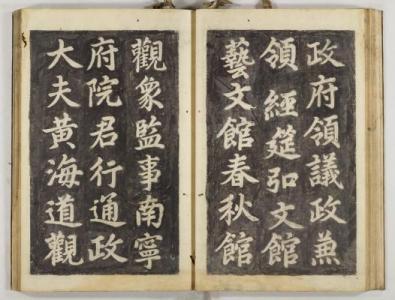 政府領議政兼
領 經筵弘文館
藝文館春秋館
觀象監事南寧
府院君行通政
大夫黃海道觀